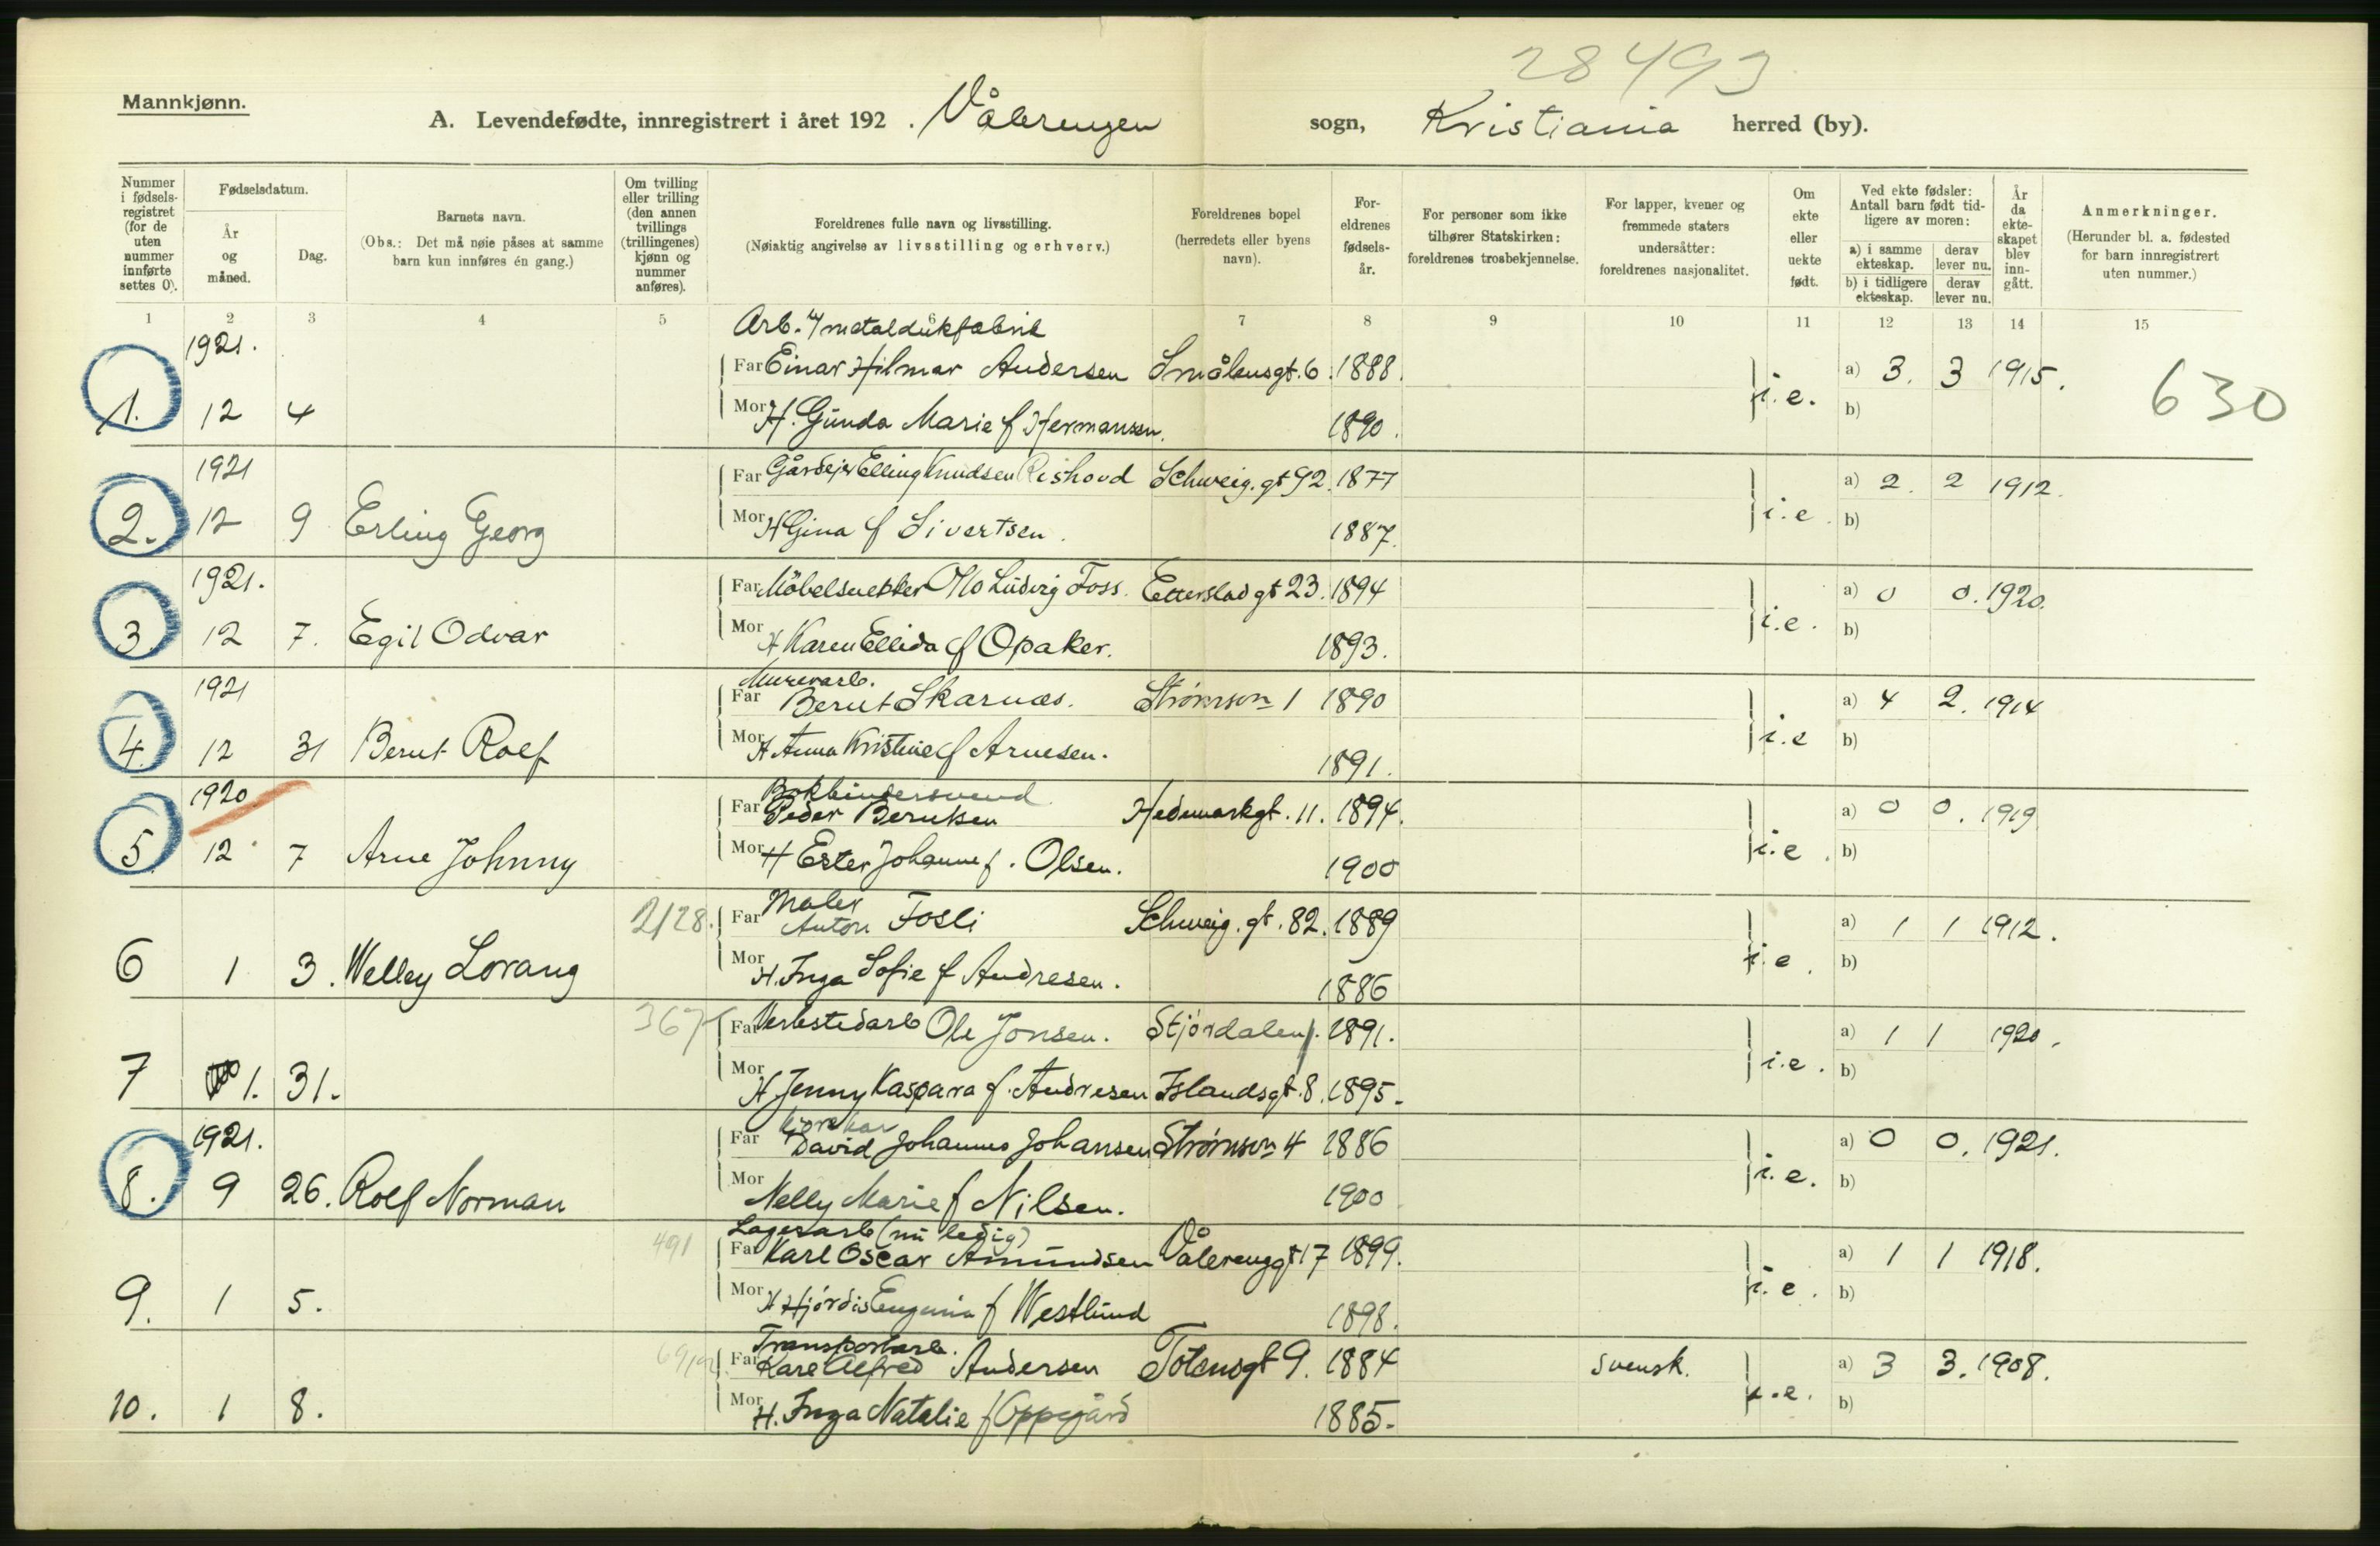 28493
Mannkjønn.
A. Levendefødte, innregistrert i året 192 . Vålerengen sogn, Kristiania herred (by).
Nummer i fødsels-registret (for de uten nummer innførte settes 0).
Fødselsdatum.
År og måned.
Dag.
Barnets navn.
(Obs.: Det må nøie påses at samme barn kun innføres én gang.)
Om tvilling eller trilling (den annen tvillings (trillingenes) kjønn og nummer anføres).
Foreldrenes fulle navn og livsstilling.
(Nøiaktig angivelse av livsstilling og erhverv.)
Foreldrenes bopel (herredets eller byens navn).
For-eldrenes fødsels-år.
For personer som ikke tilhører Statskirken: foreldrenes trosbekjennelse.
For lapper, kvener og fremmede staters undersåtter: foreldrenes nasjonalitet.
Om ekte eller uekte født.
Ved ekte fødsler: Antall barn født tid-ligere av moren:
a) i samme ekteskap.
derav lever nu.
b) i tidligere ekteskap.
derav lever nu.
År da ekte-skapet blev inn-gått.
Anmerkninger.
(Herunder bl. a. fødested for barn innregistrert uten nummer.)
1 2 3 4 5 6 7 8 9 10 11 12 13 14 15
1921. Arb. metaldukfabrik
Far Einar Hilmar Andersen Smålensgt. 6. 1888. a) 3. 3 1915. 630
1. 12 4 Mor H. Gunda Marie f Hermansen. 1890. i.e. b)
1921 Far Gårdejer Elling Knudsen Rishovd Schweig. gt 92. 1877 a) 2. 2 1912.
2. 12 9 Erling Georg Mor H Gina f Sivertsen. 1887. i.e. b)
1921. Far Möbelsnekker Otto Ludvig Foss. Etterstad gt 23. 1894 a) 0 0. 1920.
3. 12 7. Egil Odvar Mor H Karen Ellida f Opaker. 1893. i.e. b)
1921 Murerarb.
Far Bernt Skarnæs. Strømsvn 1 1890 a) 4 2. 1914
4. 12 31 Bernt Rolf Mor H Anna Kristine f Arnesen. 1891. i.e b)
1920 Bokbindersvend
Far Peder Berntsen Hedemarkgt. 11. 1894. a) 0 0. 1919
5. 12 7 Arne Johnny Mor H Ester Johanne f. Olsen. 1900 i.e. b)
2128. Maler
Far Anton Fosli Schweig. gt. 82. 1889 a) 1 1 1912.
6 1 3. Welley Lorang Mor H. Inga Sofie f Andresen. 1886 i.e. b)
367 Far Verkstedarb Ole Jonsen. Stjördalen. 1891. a) 1 1 1920.
7 1. 31. Mor H Jenny Kaspara f. Andresen Islandsgt. 8. 1895. i.e. b)
1921. Kjørekar
Far David Johannes Johansen Strømsvn 4 1886 a) 0 0. 1921.
8. 9 26. Rolf Norman Mor Nelly Marie f Nilsen. 1900 i.e. b)
491 Lagerarb (nu ledig)
Far Karl Oscar Amundsen Vålerenggt 17 1899. a) 1 1 1918.
9. 1 5. Mor H Hjördis Eugenia f Westlund 1898. i.e. b)
Transportarb.
Far Karl Alfred Andersen Totensgt 9. 1884 svensk. a) 3 3. 1908.
10. 1 8. Mor H. Inga Natalie f Oppegård 1885. i.e. b)